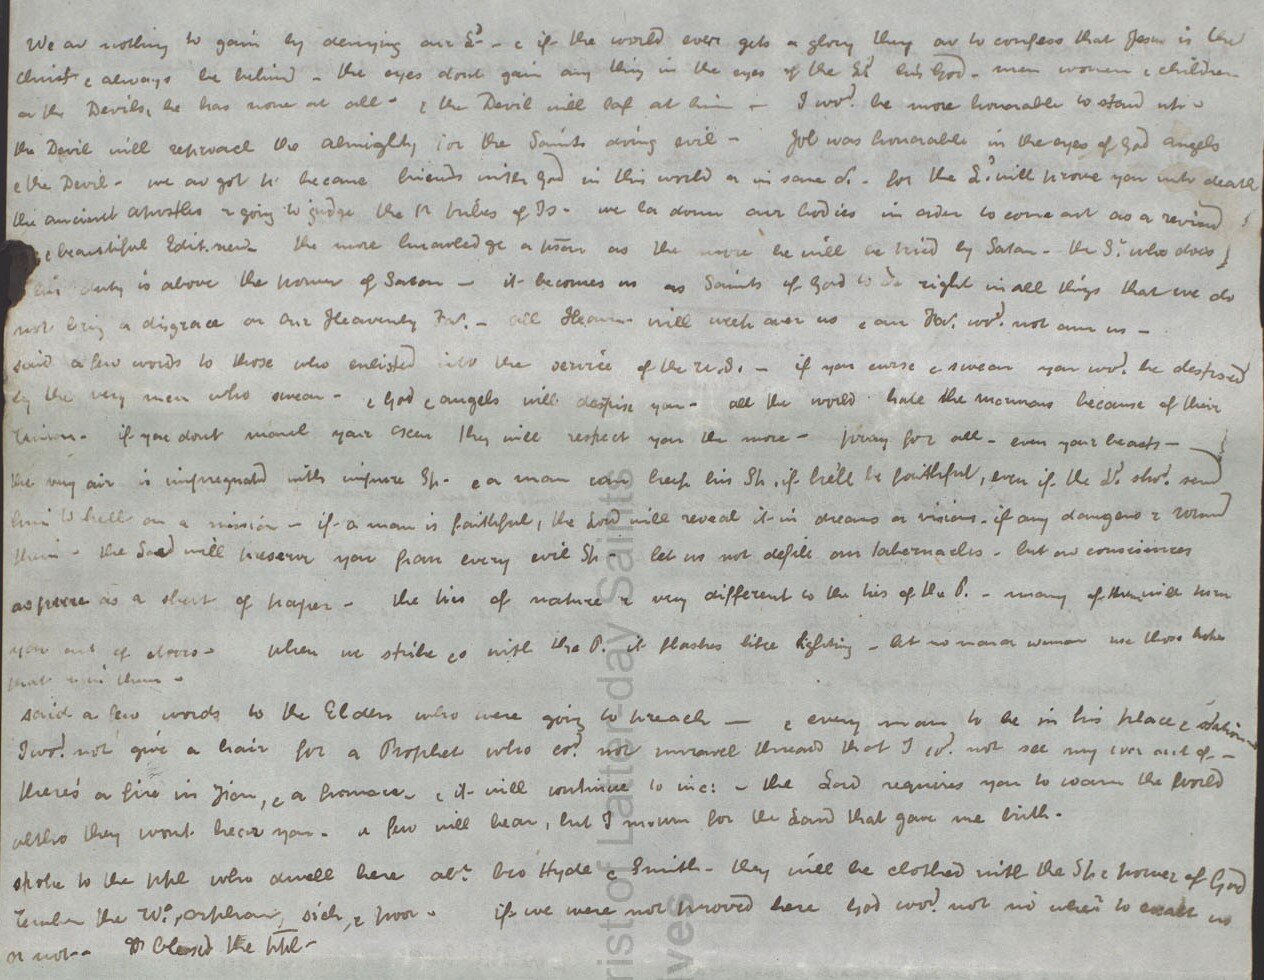 We ar nothing to gain by denying our Ld - & if the world ever gets a glory they ar to confess that Jesus is the
Christ & always be behind - the eyes dont gain any thing in the eyes of the Ld his God - men women & children
ar the Devils, he has none at all - & the Devil will laf at him - I wod. be more honorable to stand
the Devil will reproach the almighty for the Saints doing evil - Job was honorable in the eyes of God angels
& the Devil - we ar got to become friends with God in this world or in same - for the Ld will prove you unto death
the ancient apostles r going to judge the 12 tribes of Is - we la down our bodies in order to come out as a revised
& beautiful Edit. the more knowledge a psn as the more he will be tried by Satan - the St. who does
his duty is above the power of Satan - it becomes us as Saints of God to do right in all things that we do
not brig a disgrace on our Heavenly Far. - all Heaven will weep over us & our Far. wod. not own us -
said a few words to those who enlisted into the service of the U.S. - if you curse & swear you wod. be despised
by the very men who swear - & God & angels will despise you - all the world hate the mormons because of their
Union - if you dont they will respect you the more - pray for all - even your beasts -
the very air is impregnated with impure Sp - & a man can keep his Sp, if he'll be faithful, even if the Ld. shod. send
him to hell on a mission - if a man is faithful, the Lord will reveal it in dreams or visions - if any dangers r round
them - the Lord will preserve you from every evil Sp - let us not defile our tabernacles - but our consciences
as pure as a sheet of paper - the ties of nature r very different to the ties of the P. - many of them will turn
you out of doors - when we strike with the P. it flashes like lightning - let no man or woman use those
that ruin them -
said a few words to the Elders who were going to preach - & every man to be in his place & station
I wod. not give a hair for a Prophet who cod. not unravel thread that I cod. not see my way out of -
there's a fire in Zion, & a furnace - & it will continue to inc: - the Lord requires you to warn the World
altho they wont hear you - a few will hear, but I mourn for the Land that gave me birth -
spoke to the ppl who dwell here abt. bro Hyde & Smith - they will be clothed with the Sp & power of God
rember the Wo., orphan, sick, & poor - if we were not proved here God wod. not no whe'r to exalt us
or not - blessed the ppl -
rist of Latter-day Saints
ves